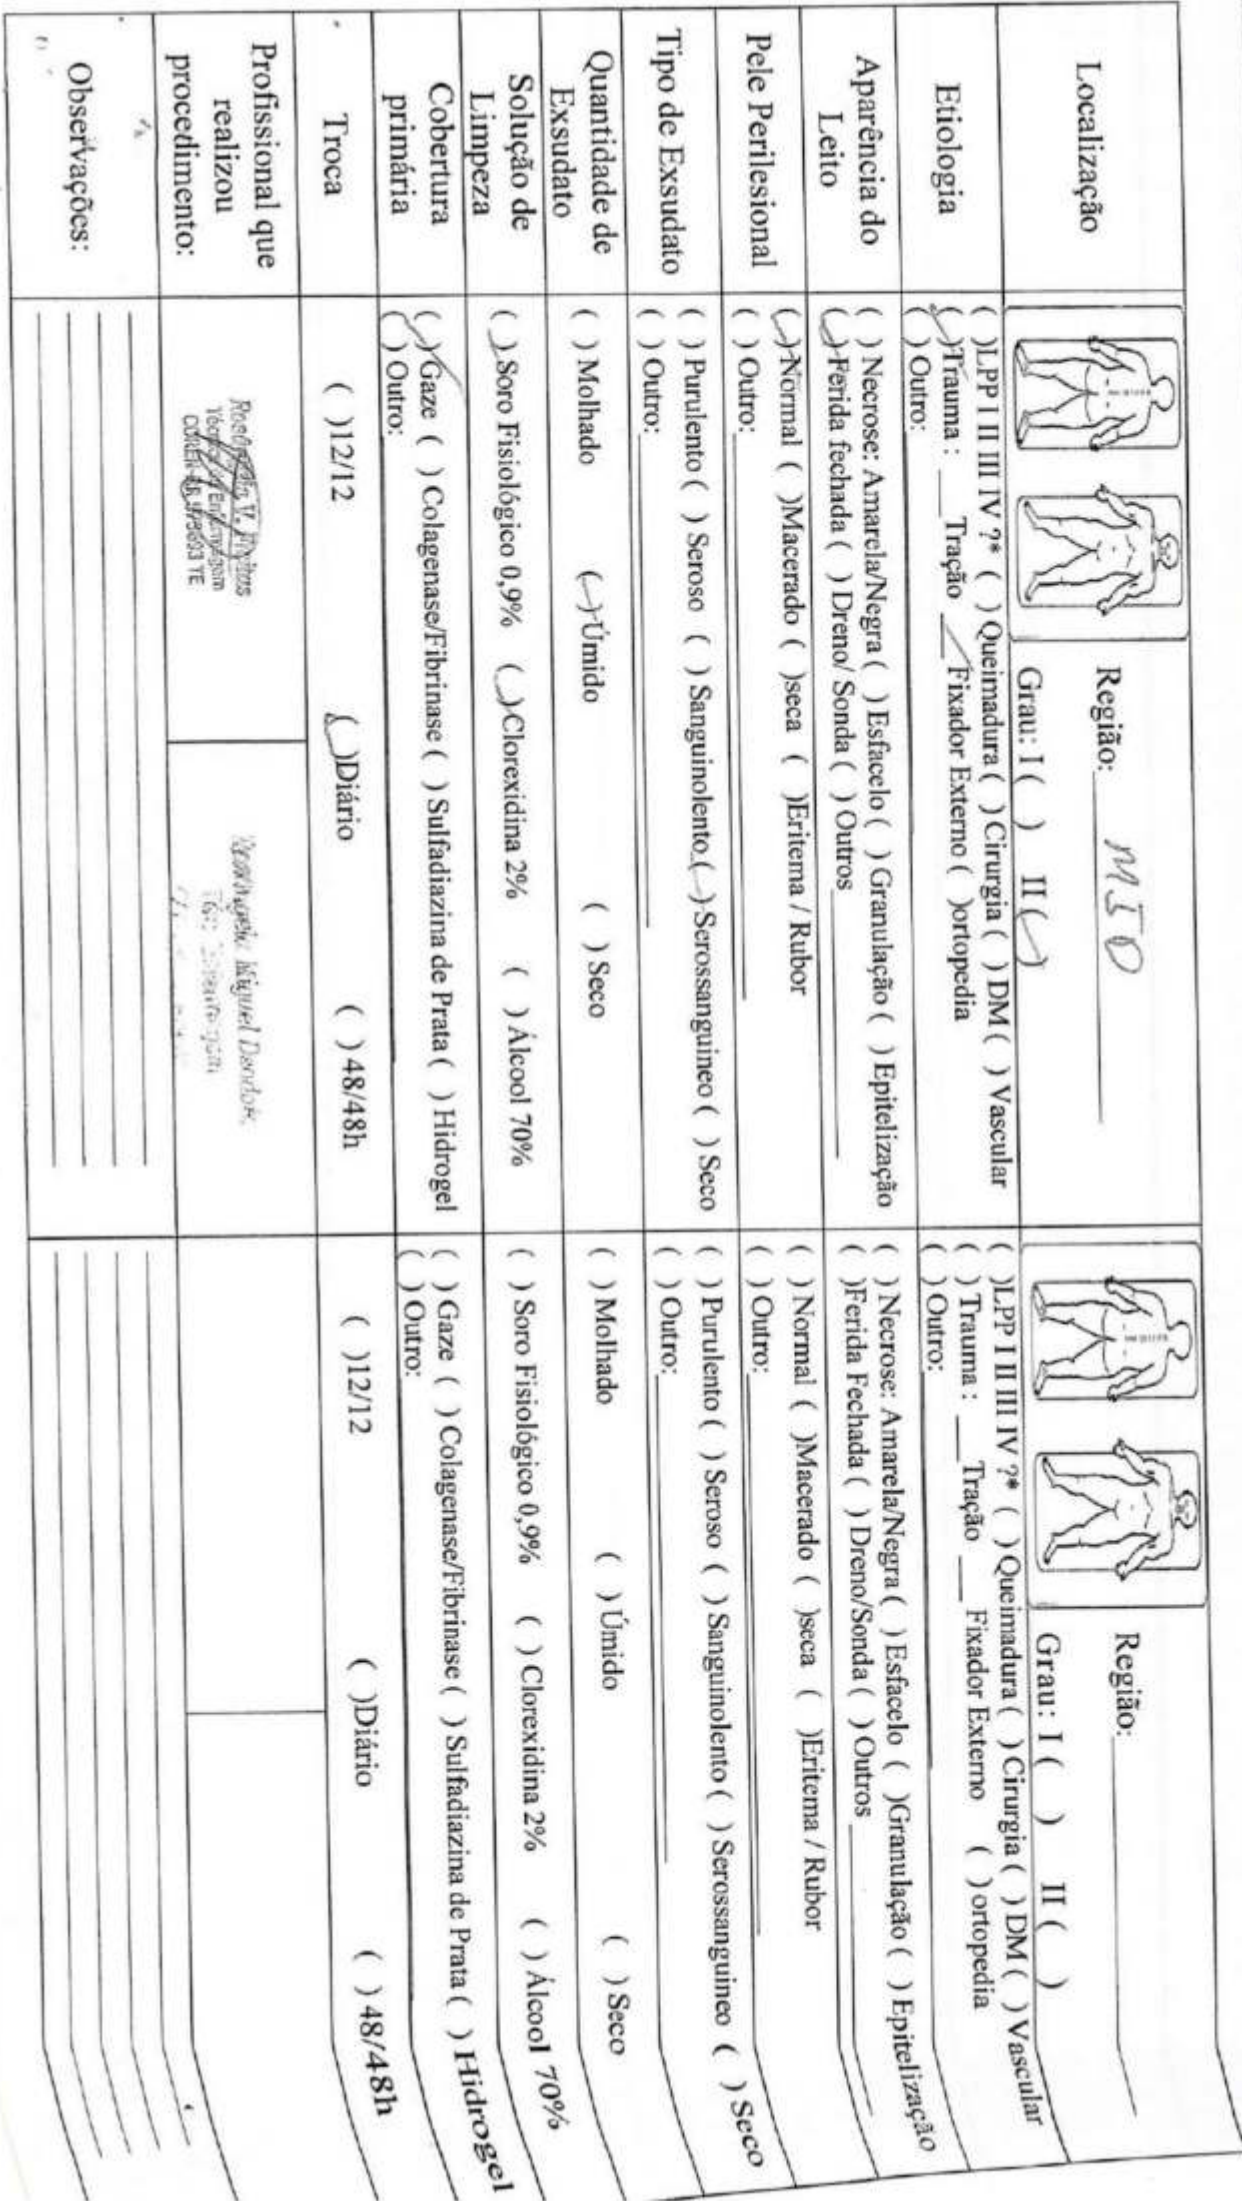 Localização
Região: MID
Grau: I ( ) II (✓)
Região:
Grau: I ( ) II ( )
Etiologia
( )LPP I II III IV ?* ( ) Queimadura ( ) Cirurgia ( ) DM ( ) Vascular
(✓)Trauma : ___ Tração ✓ Fixador Externo ( )ortopedia
( ) Outro:
( )LPP I II III IV ?* ( ) Queimadura ( ) Cirurgia ( ) DM ( ) Vascular
( ) Trauma : ___ Tração ___ Fixador Externo ( ) ortopedia
( ) Outro:
Aparência do
Leito
( ) Necrose: Amarela/Negra ( ) Esfacelo ( ) Granulação ( ) Epitelização
(✓)Ferida fechada ( ) Dreno/ Sonda ( ) Outros
( ) Necrose: Amarela/Negra ( ) Esfacelo ( )Granulação ( ) Epitelização
( )Ferida Fechada ( ) Dreno/Sonda ( ) Outros
Pele Perilesional
(✓)Normal ( )Macerado ( )seca ( )Eritema / Rubor
( ) Outro:
( ) Normal ( )Macerado ( )seca ( )Eritema / Rubor
( ) Outro:
Tipo de Exsudato
( ) Purulento ( ) Seroso ( ) Sanguinolento (✓) Serossanguineo ( ) Seco
( ) Outro:
( ) Purulento ( ) Seroso ( ) Sanguinolento ( ) Serossanguineo ( ) Seco
( ) Outro:
Quantidade de
Exsudato
( ) Molhado (✓)Úmido ( ) Seco
( ) Molhado ( ) Úmido ( ) Seco
Solução de
Limpeza
(✓) Soro Fisiológico 0,9% (✓)Clorexidina 2% ( ) Álcool 70%
( ) Soro Fisiológico 0,9% ( ) Clorexidina 2% ( ) Álcool 70%
Cobertura
primária
(✓)Gaze ( ) Colagenase/Fibrinase ( ) Sulfadiazina de Prata ( ) Hidrogel
( ) Outro:
( ) Gaze ( ) Colagenase/Fibrinase ( ) Sulfadiazina de Prata ( ) Hidrogel
( ) Outro:
Troca
( )12/12 (✓)Diário ( ) 48/48h
( )12/12 ( )Diário ( ) 48/48h
Profissional que
realizou
procedimento:
Miguel
Observações: